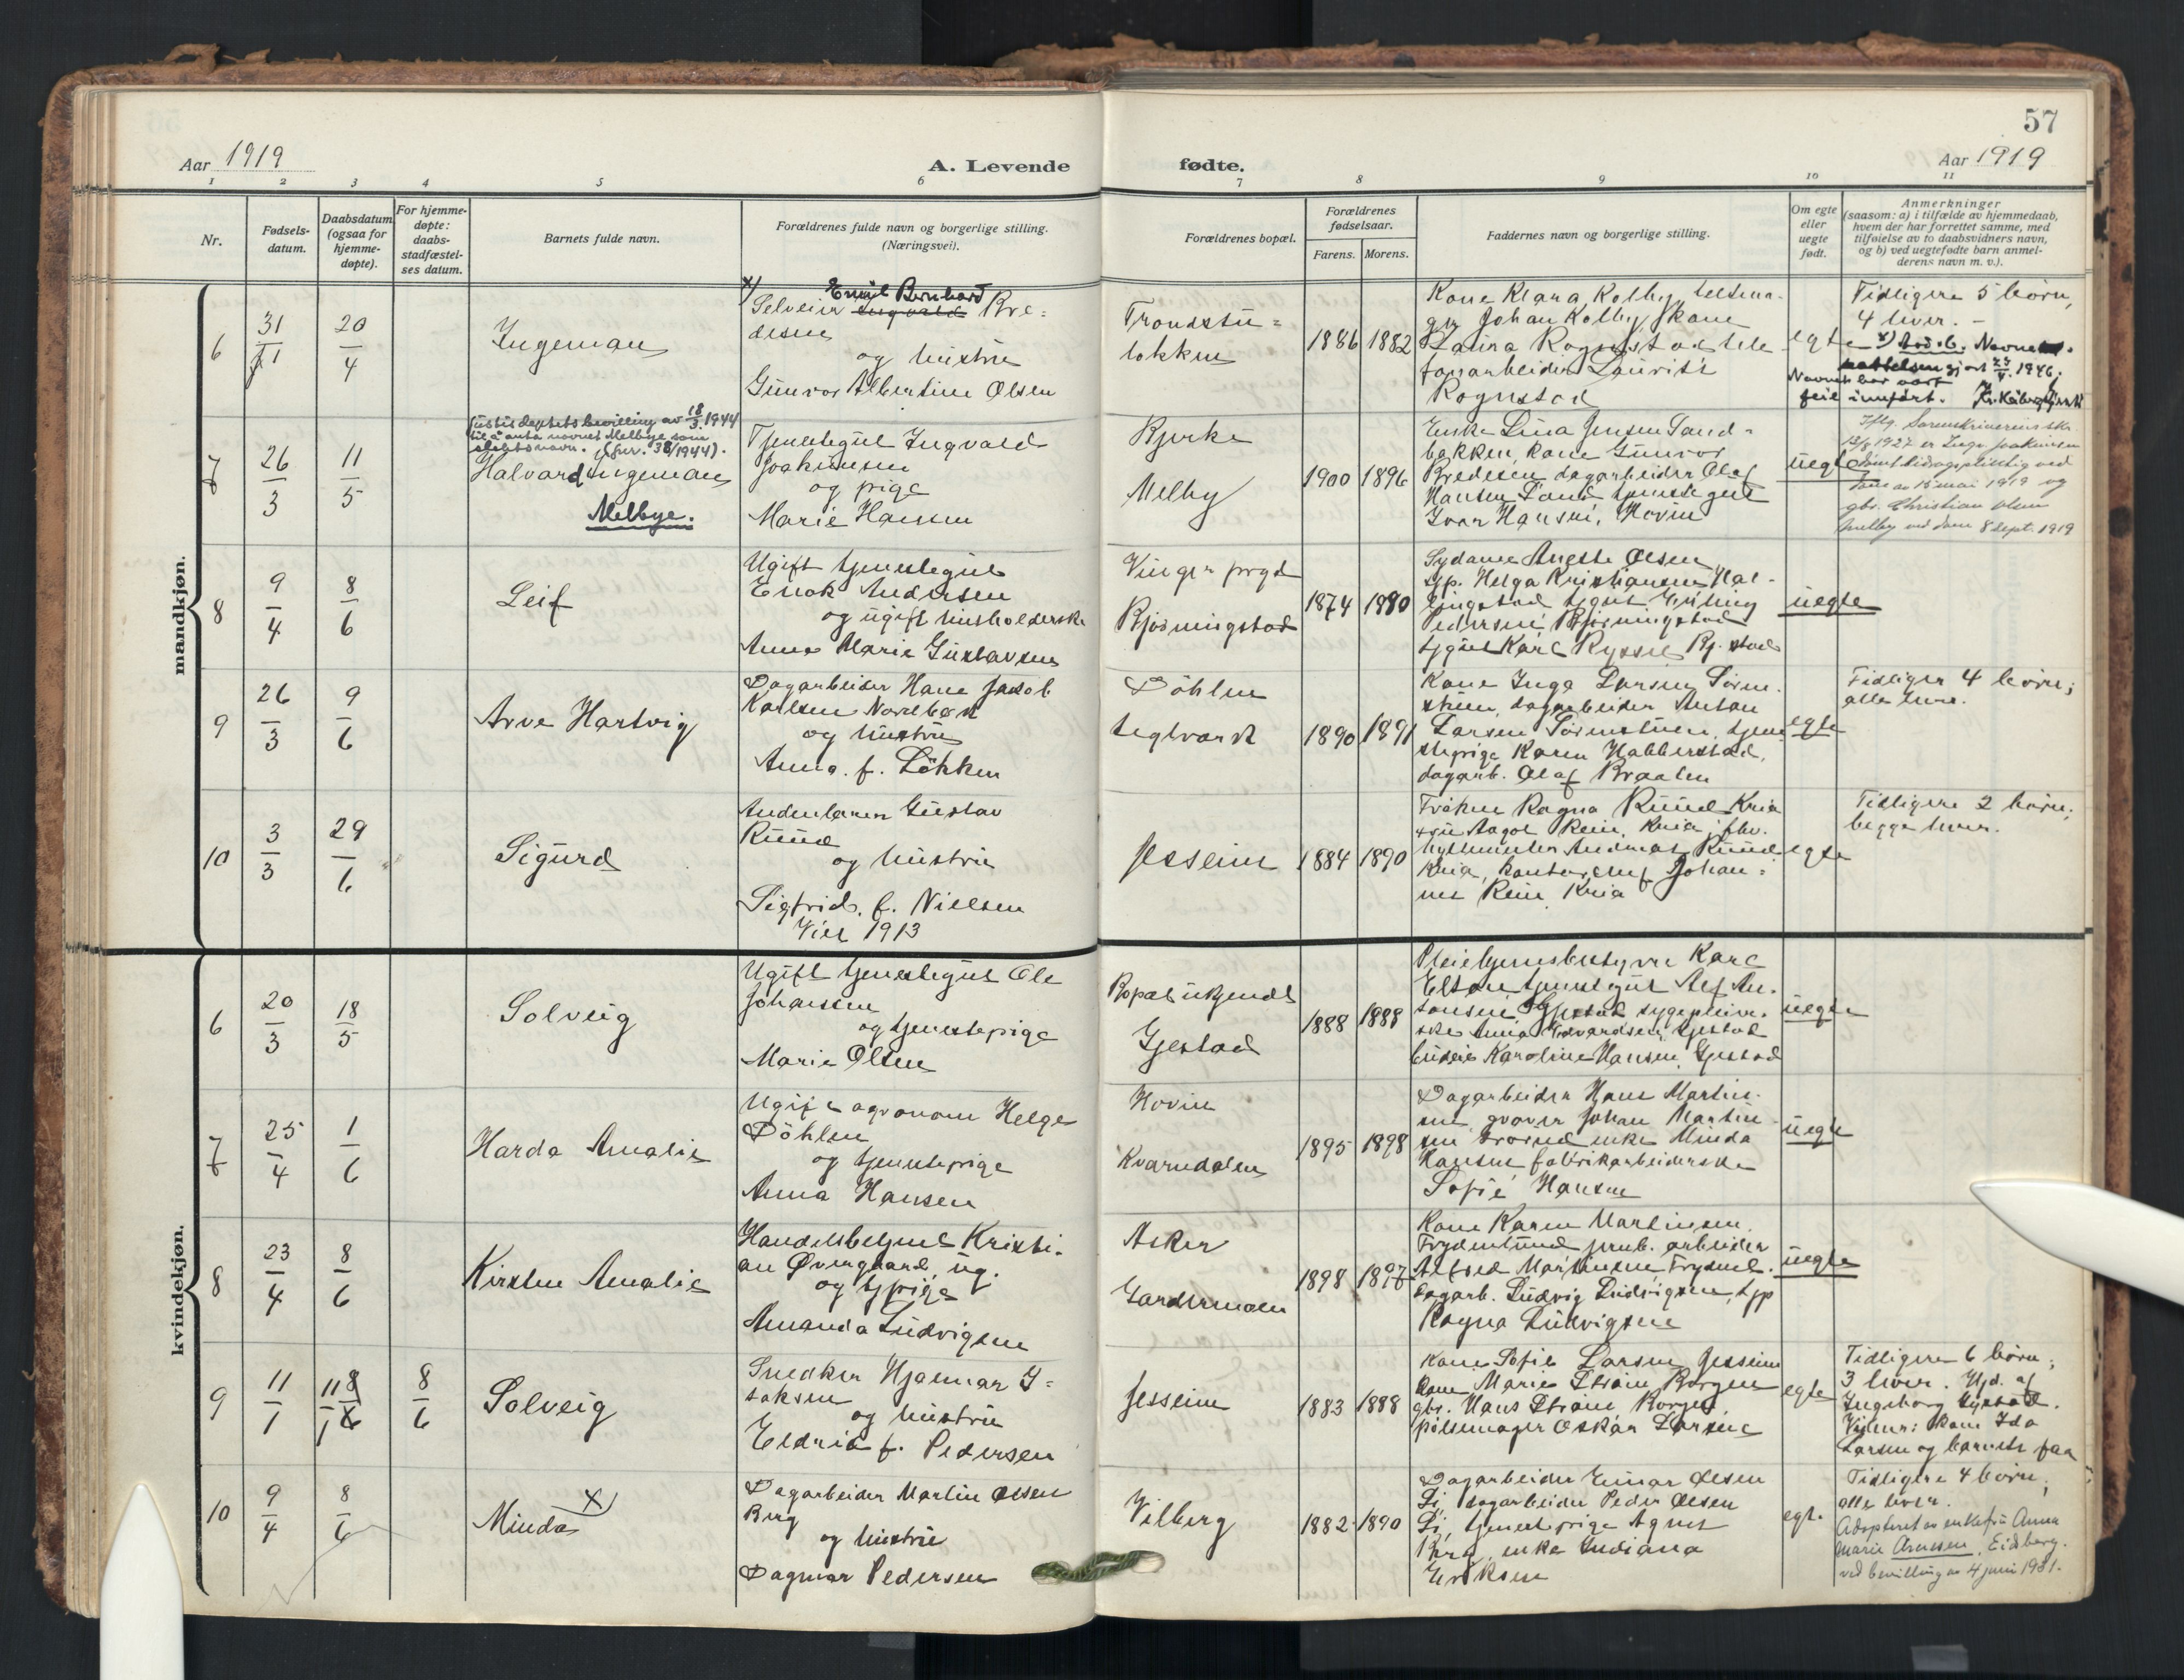 57
Aar 1919
A. Levende
fødte.
Aar 1919
1 2 3 4 5 6 7 8 9 10 11
Nr.
Fødsels-
datum.
Daabsdatum
(ogsaa for
hjemme-
døpte).
For hjemme-
døpte:
daabs-
stadfæstel-
ses datum.
Barnets fulde navn.
Forældrenes fulde navn og borgerlige stilling.
(Næringsvei).
Forældrenes bopæl.
Forældrenes
fødselsaar.
Farens. Morens.
Faddernes navn og borgerlige stilling.
Om egte
eller
uegte
født.
Anmerkninger
(saasom: a) i tilfælde av hjemmedaab,
hvem der har forrettet samme, med
tilføielse av to daabsvidners navn,
og b) ved uegtefødte barn anmel-
derens navn m. v.).
mandkjøn.
6
31/1
20/4
Ingeman
x) Emil Bernhard
Selveier Ingvald Bre=
desen
og hustru
Gunvor Albertine Olsen
Trondstu=
lokken
1886 1882
Kone Klara Kolby, selsma.
gr. Johan Kolby, kone
Laura Rognstad tele
fonarbeider Laurits
Rognstad
egte
Tidligere 5 børn,
4 lever. –
Navnet har vært
feil innført.
7
26/3
11/5
Justisdeptets bevilling av 18/3 1944
til å anta navnet Melbye som
slektsnavn. (jnr. 38/1944).
Halvard Ingeman
Melbye.
Tjenestegut Ingvald
Joakimsen
og pige
Marie Hansen
Kjerke
Melby
1900 1896
Enke Lina Jensen Sand-
bakken, kone Gunvor
Bredesen, dagarbeider Olaf
Hansen Sand tjenestegut
Ivar Hansen, Hovin
uegte
Iflg. Sorenskriverens skr.
12/9 1927 er Ingv. Joakimsen
dømt bidragspliktig ved
dom av 15 mai 1919 og
gbr. Christian Olsen
Melby ved dom 8 sept. 1919
8
9/4
8/6
Leif
Ugift tjenestegut
Enok Andersen
og ugift husholderske
Anna Marie Gustavsen
Vinger prgd
Bjørningstad
1874 1880
Sydame Aneste Olsen
tjp. Helga Kristiansen Hal-
tjgut Erling
Pedersen Bjørningstad
tjgut Karl Bj. stad
uegte
9
26/3
9/6
Arve Hartvig
Dagarbeider Hans Jakob
Karlsen Nordbæk
og hustru
Anna. f. Løkken
Døhlen
teglverk
1890 1891
Kone Inga Larsen Sørum.
stuen, dagarbeider Anton
Larsen Sørumstuen, tjene
stepige Karen Habberstad,
dagarb. Olaf Braaten
egte
Tidligere 4 børn;
alle lever.
10
3/3
29/6
Sigurd
Gustav
Ruud
og hustru
Sigfrid. f. Nielsen
Viet 1913
Jesseim
1884 1890
Frøken Ragna Ruud Kria
fru Aagot Rein, Kria, fhv.
Andreas Ruud
Kria, kontorchef Johan=
nes Rein Kria
egte
Tidligere 2 børn;
begge lever.
kvindekjøn.
6
20/3
18/5
Solveig
Ugift tjenestegut Ole
Johansen
og tjenestepige
Marie Olsen
Bopæl ukjendt
Gjestad
1888 1888
Pleiehjemsbestyrer Karl
Elton tjenestegut Alf An.
tonsen Gjestad sygepleier.
ske Anna Edvardsen Gjestad
budeie Karoline Hansen, Gjestad
uegte
7
25/4
1/6
Harda Amalie
Ugift agronom Helge
Døhlen
og tjenestepige
Anna Hansen
Hovin
Kverndalen
1895 1898
Dagarbeider Hans Martin-
sen, graver Johan Martin
sen enke Minda
Hansen fabrikarbeiderske
Sofie Hansen
uegte
8
23/4
8/6
Kirsten Amalie
Handelsbetjent Kristi-
an Øvergaard, ug.
og tjpige
Amanda Ludvigsen
Asker
Gardermoen
1898 1897
Kone Karen Martinsen,
Frydenlund jernb. arbeider
Alfred Martinsen Frydenl.
dagarb. Ludvig Ludvigsen, tjp
Ragna Ludvigsen
uegte
9
11/1
8/6
Solveig
Snedker Hjalmar I=
saksen
og hustru
Eldrid f. Pedersen
Jesseim
1883 1888
Kone Sofie Larsen Jesseim
kone Marie Strøm Borgen
gbr. Hans Strøm Borgen,
pølsemager Oskar Larsen
egte
Tidligere 6 børn;
3 lever. Hjd. af
Ingeborg Gjestad.
Vidner: kone Ida
Larsen og barnets far
10
9/4
8/6
Minda x)
Dagarbeider Martin Olsen
Berg
og hustru
Dagmar Pedersen
Vilberg
1882 1890
Dagarbeider Einar Olsen
Li, dagarbeider Peder Olsen
Li, tjenestepige Agnes
Berg, enke Indiana
Eriksen
egt.
Tidligere 4 børn,
alle lever.
Adopteret av enkefru Anna
Marie Arnesen, Eidsberg.
ved bevilling av 4 juni 1931.